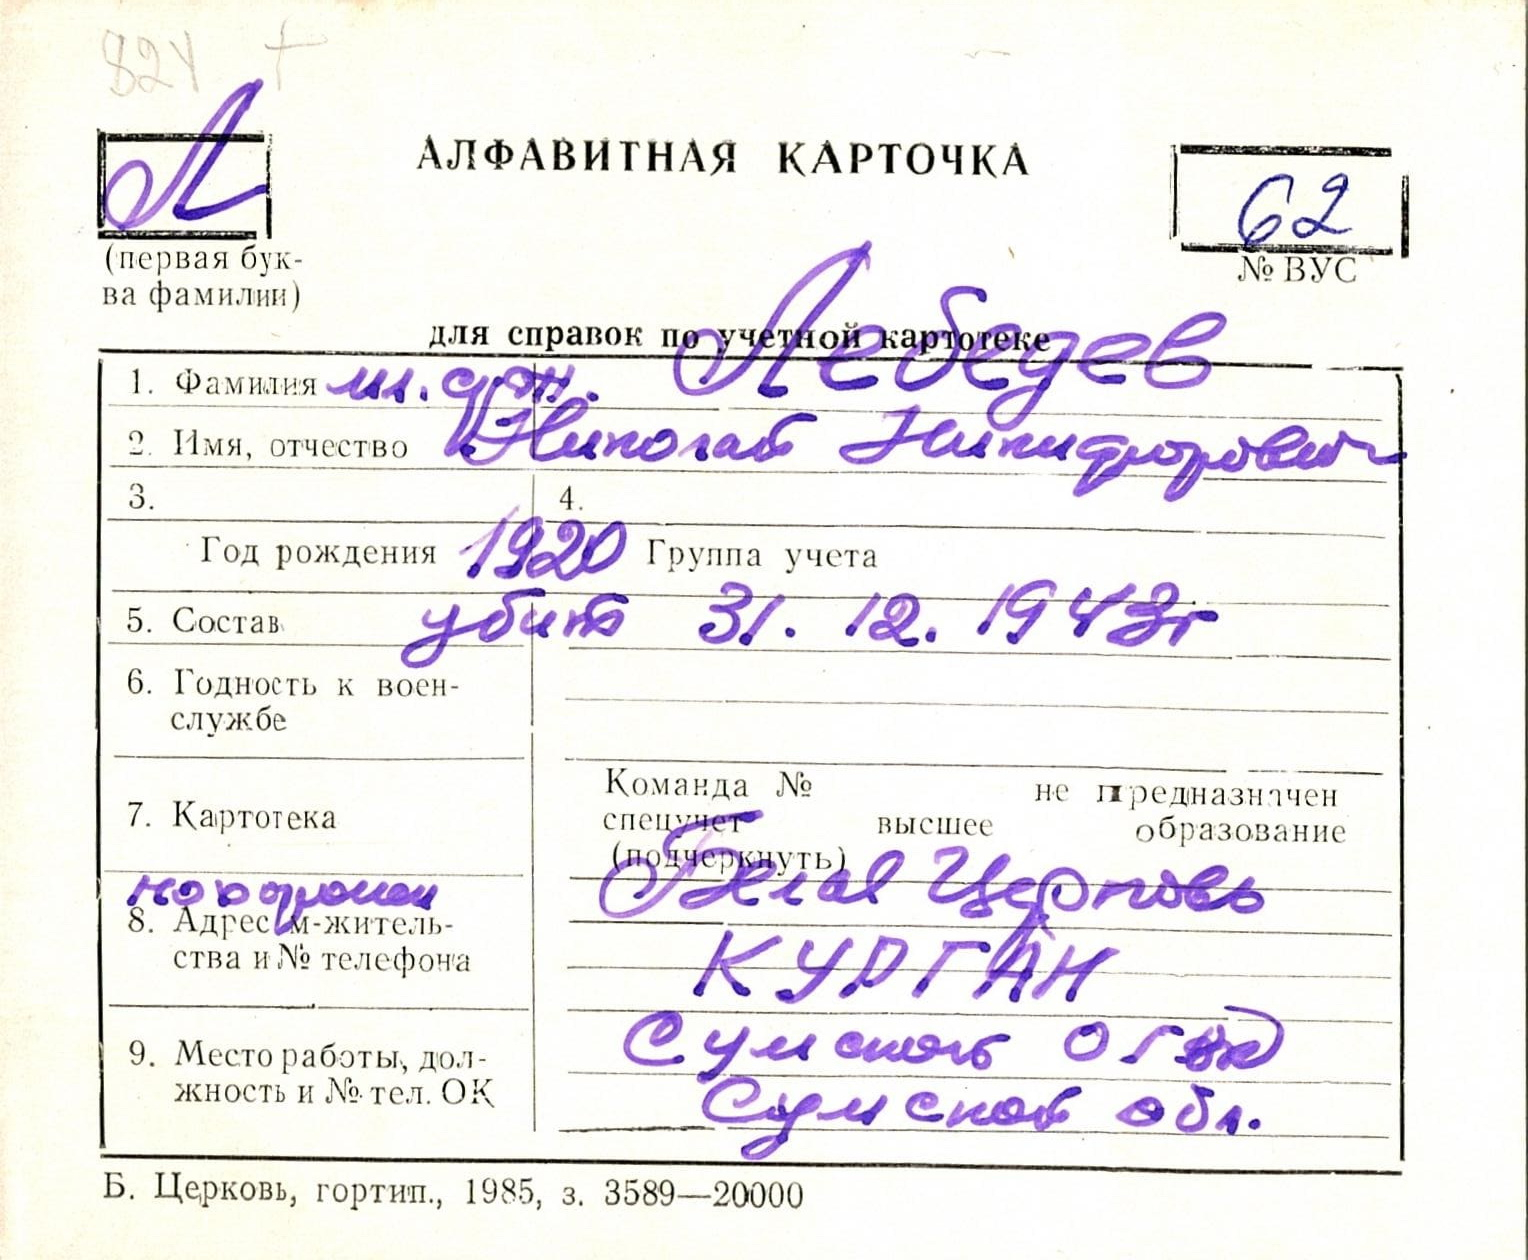 824 +
Л
АЛФАВИТНАЯ КАРТОЧКА
62
(первая бук-
ва фамилии)
№ ВУС
для справок по учетной картотеке
1. Фамилия мл. с-т. Лебедев
2. Имя, отчество Николай Никифорович
3. 4.
Год рождения 1920 Группа учета
5. Состав убит 31. 12. 1943г
6. Годность к воен-
службе
7. Картотека
Команда № не предназначен
спецучет высшее образование
(подчеркнуть)
похоронен Белая Церковь
8. Адрес м-житель-
ства и № телефона
КУРГАН
9. Место работы, дол-
жность и № тел. ОК
Сумской
Сумской обл.
Б. Церковь, гортип., 1985, з. 3589—20000